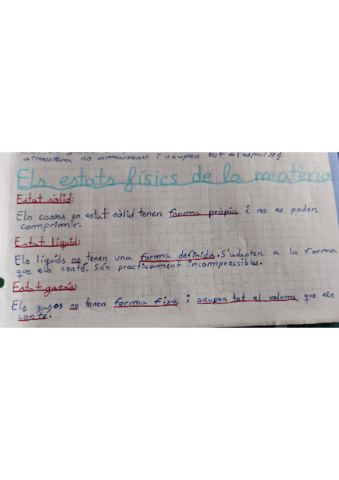 atmosfera no emmarxans i ocupen tot el espai
Els estats físics de la matèria
Estat sòlid:
Els cossos en estat sòlid tenen forma pròpia i no es poden
comprimir.
Estat líquid:
Els líquids no tenen una forma definida. S'adapten a la forma
que els conté. Són practicament incompressibles.
Estat gasós:
Els gasos no tenen forma fixa i ocupen tot el volum que els
conté.